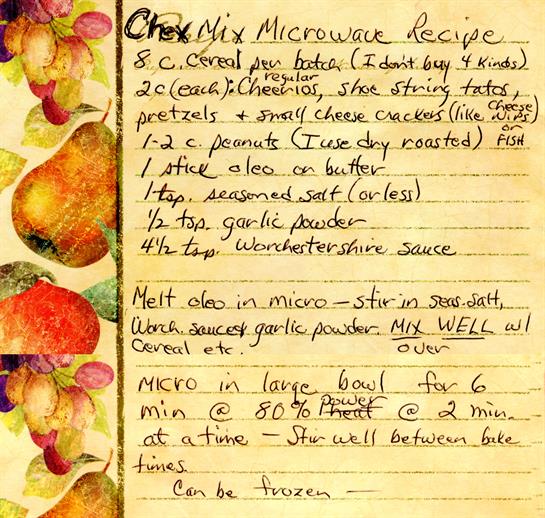 Chex Mix Microwave Recipe
8 c. Cereal per batch (I don't buy 4 kinds)
2c (each): regular Cheerios, shoe string tatos,
pretzels + small cheese crackers (like Cheese Nips or FISH
1-2 c. peanuts (I use dry roasted)
1 stick oleo or butter
1 tsp. seasoned salt (or less)
1/2 tsp. garlic powder
4 1/2 tsp. Worchestershire sauce
Melt oleo in micro – stir in seas. salt,
Worch. sauce & garlic powder MIX WELL w/
Cereal etc. over
MICRO in large bowl for 6
min @ 80% power @ 2 min.
at a time – Stir well between bake
times.
Can be frozen –